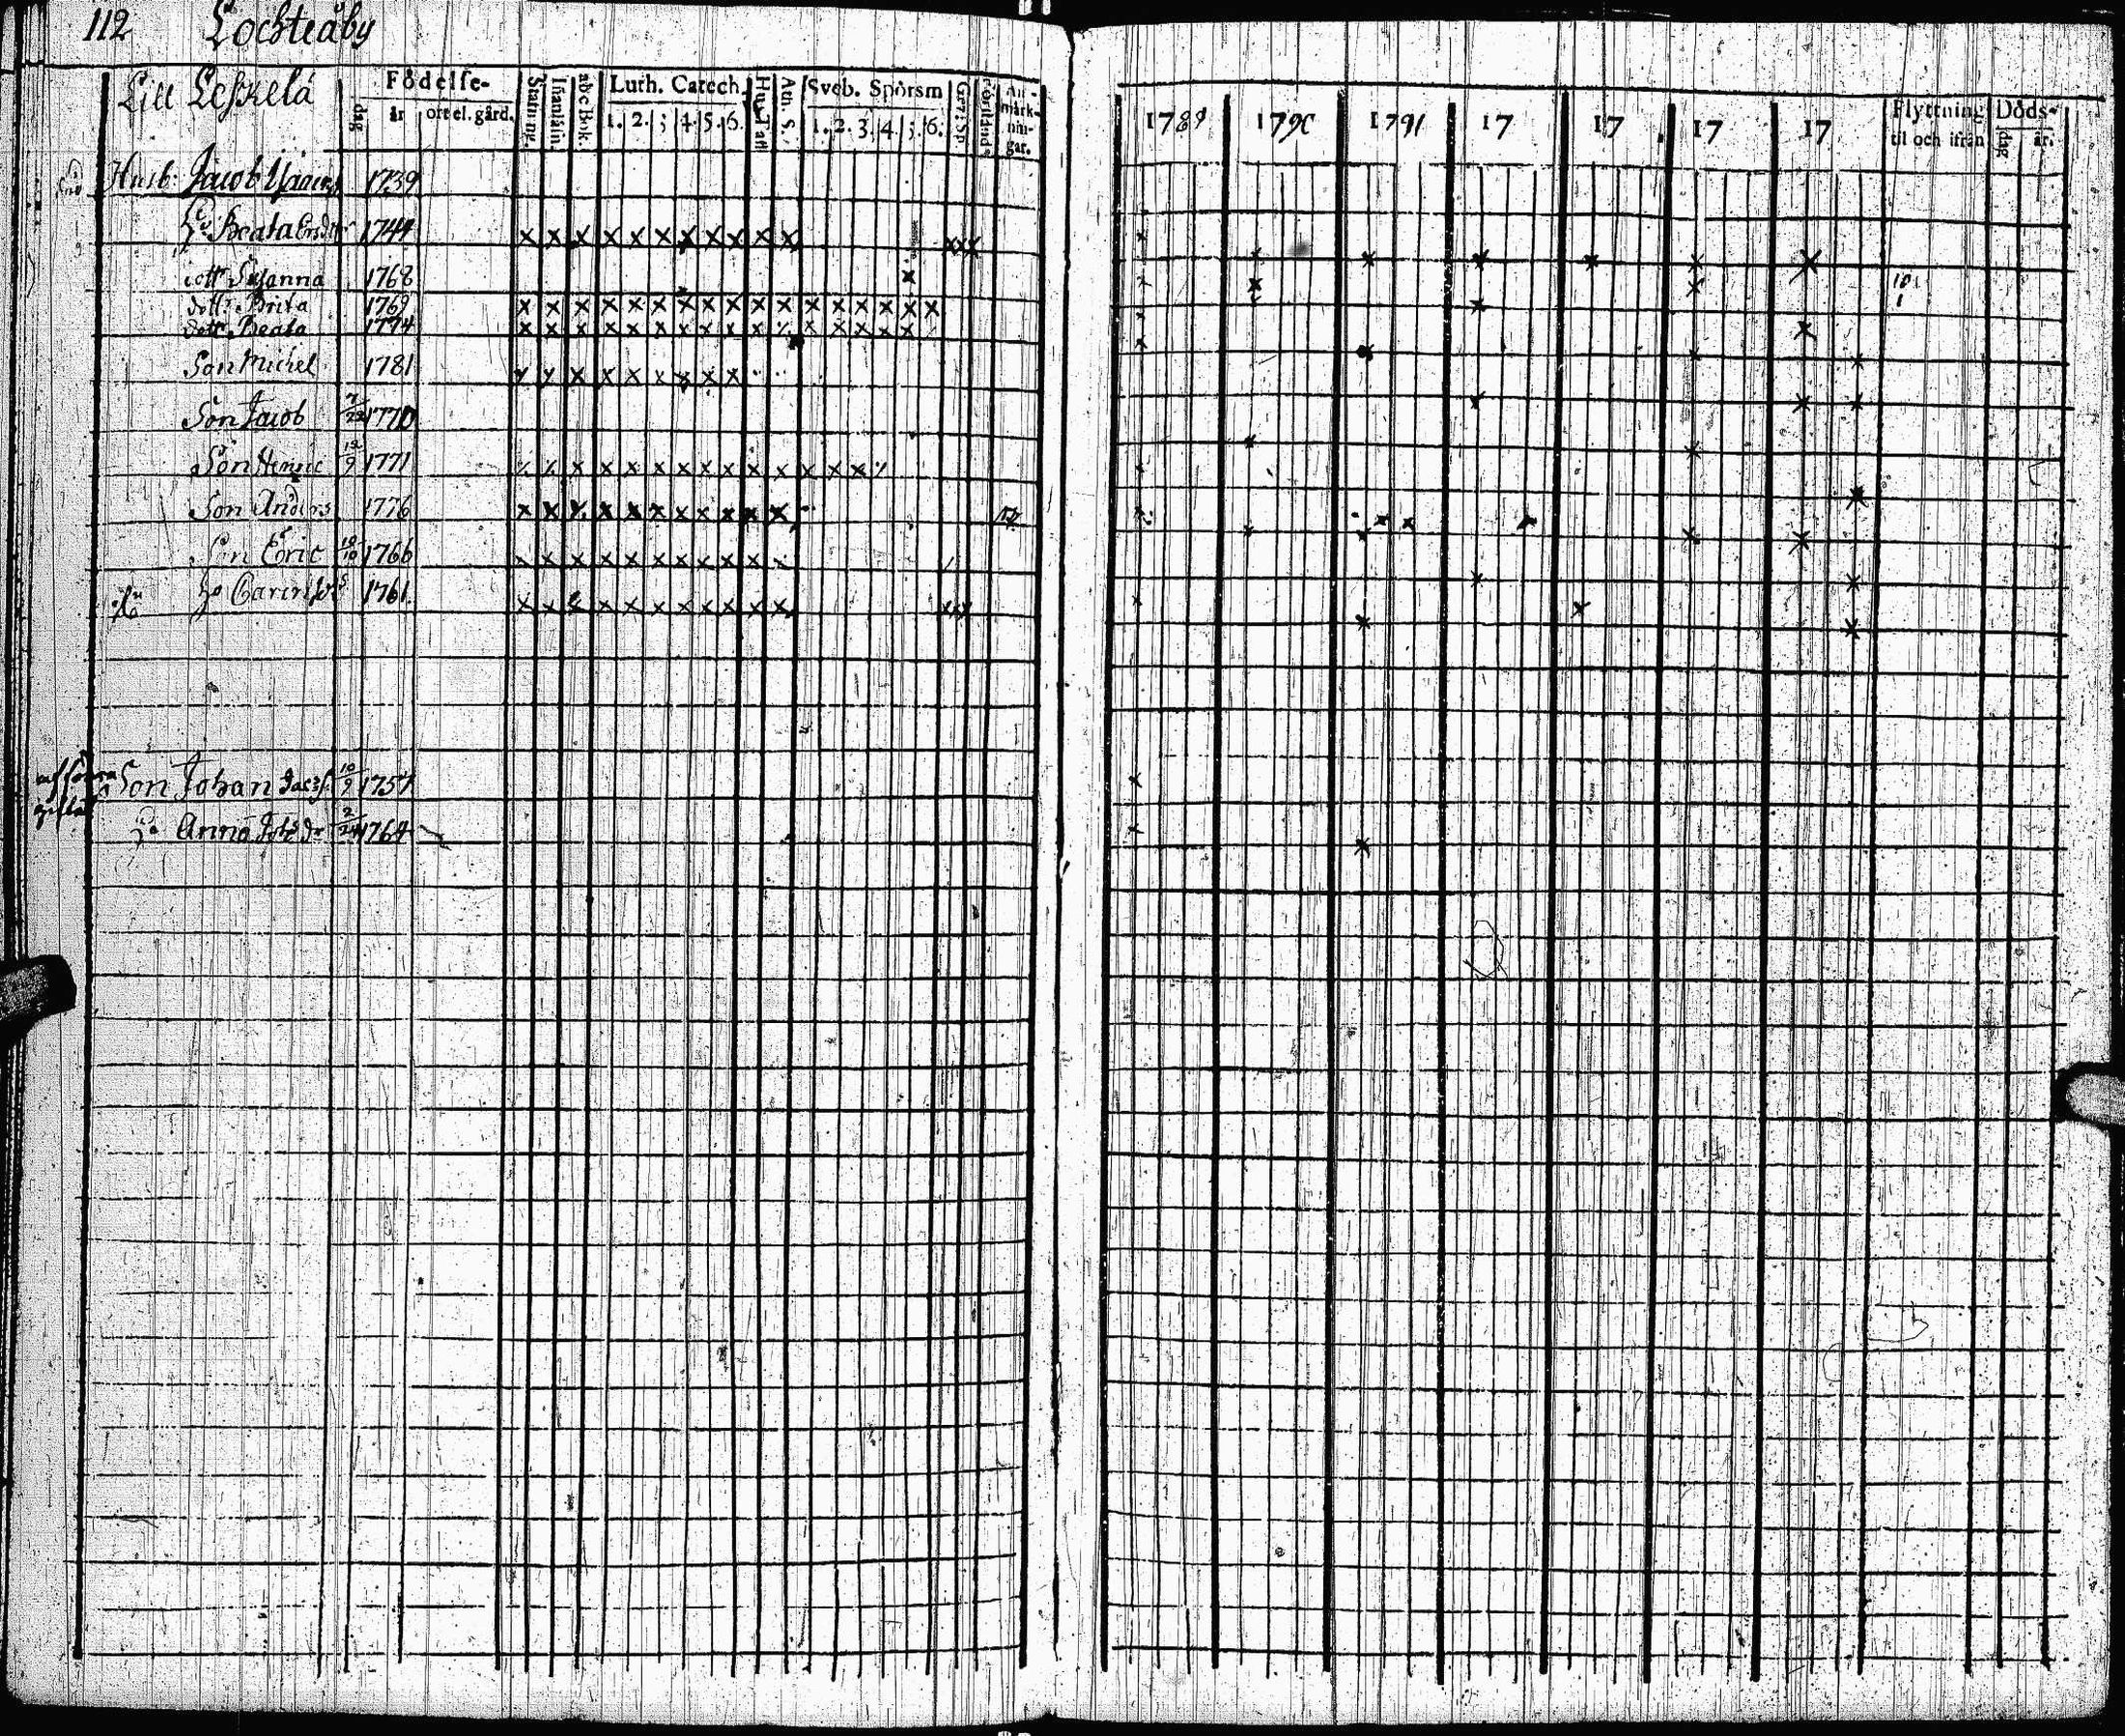 112 Lochteåby
Lill Leskelä
Födelse-
dag år ort el. gård.
Stafning.
Innanläsn.
abc Bok.
Luth. Catech.
1. 2. 3 4. 5. 6.
Hus Tafl
Ath. S.
Sveb. Spörsm
1. 2. 3. 4. 5. 6.
Förstånd
An-
märk-
nin-
gar.
1789 1790 1791 17 17 17 17
Flyttning
til och ifrån
Döds-
dag år.
Husb. Jacob 1739
H. Beata Ersdtr 1744
dottr Susanna 1768
dottr Brita 1769
dottr Beata 1774
Son Michel 1781
Son Jacob 1770
Son Henric 12/9 1771
Son Anders 1776
Son Eric 1766
H. Carin 1761
Son Johan Jacobs. 10/9 1757
H. Anna 2/24 1764